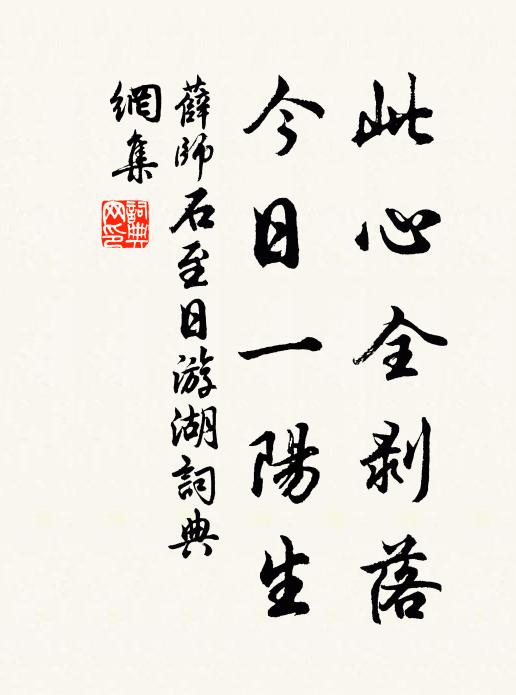 此心全剥落
今日一陽生
薛師石至日游湖詞典
網集
詞典
网印